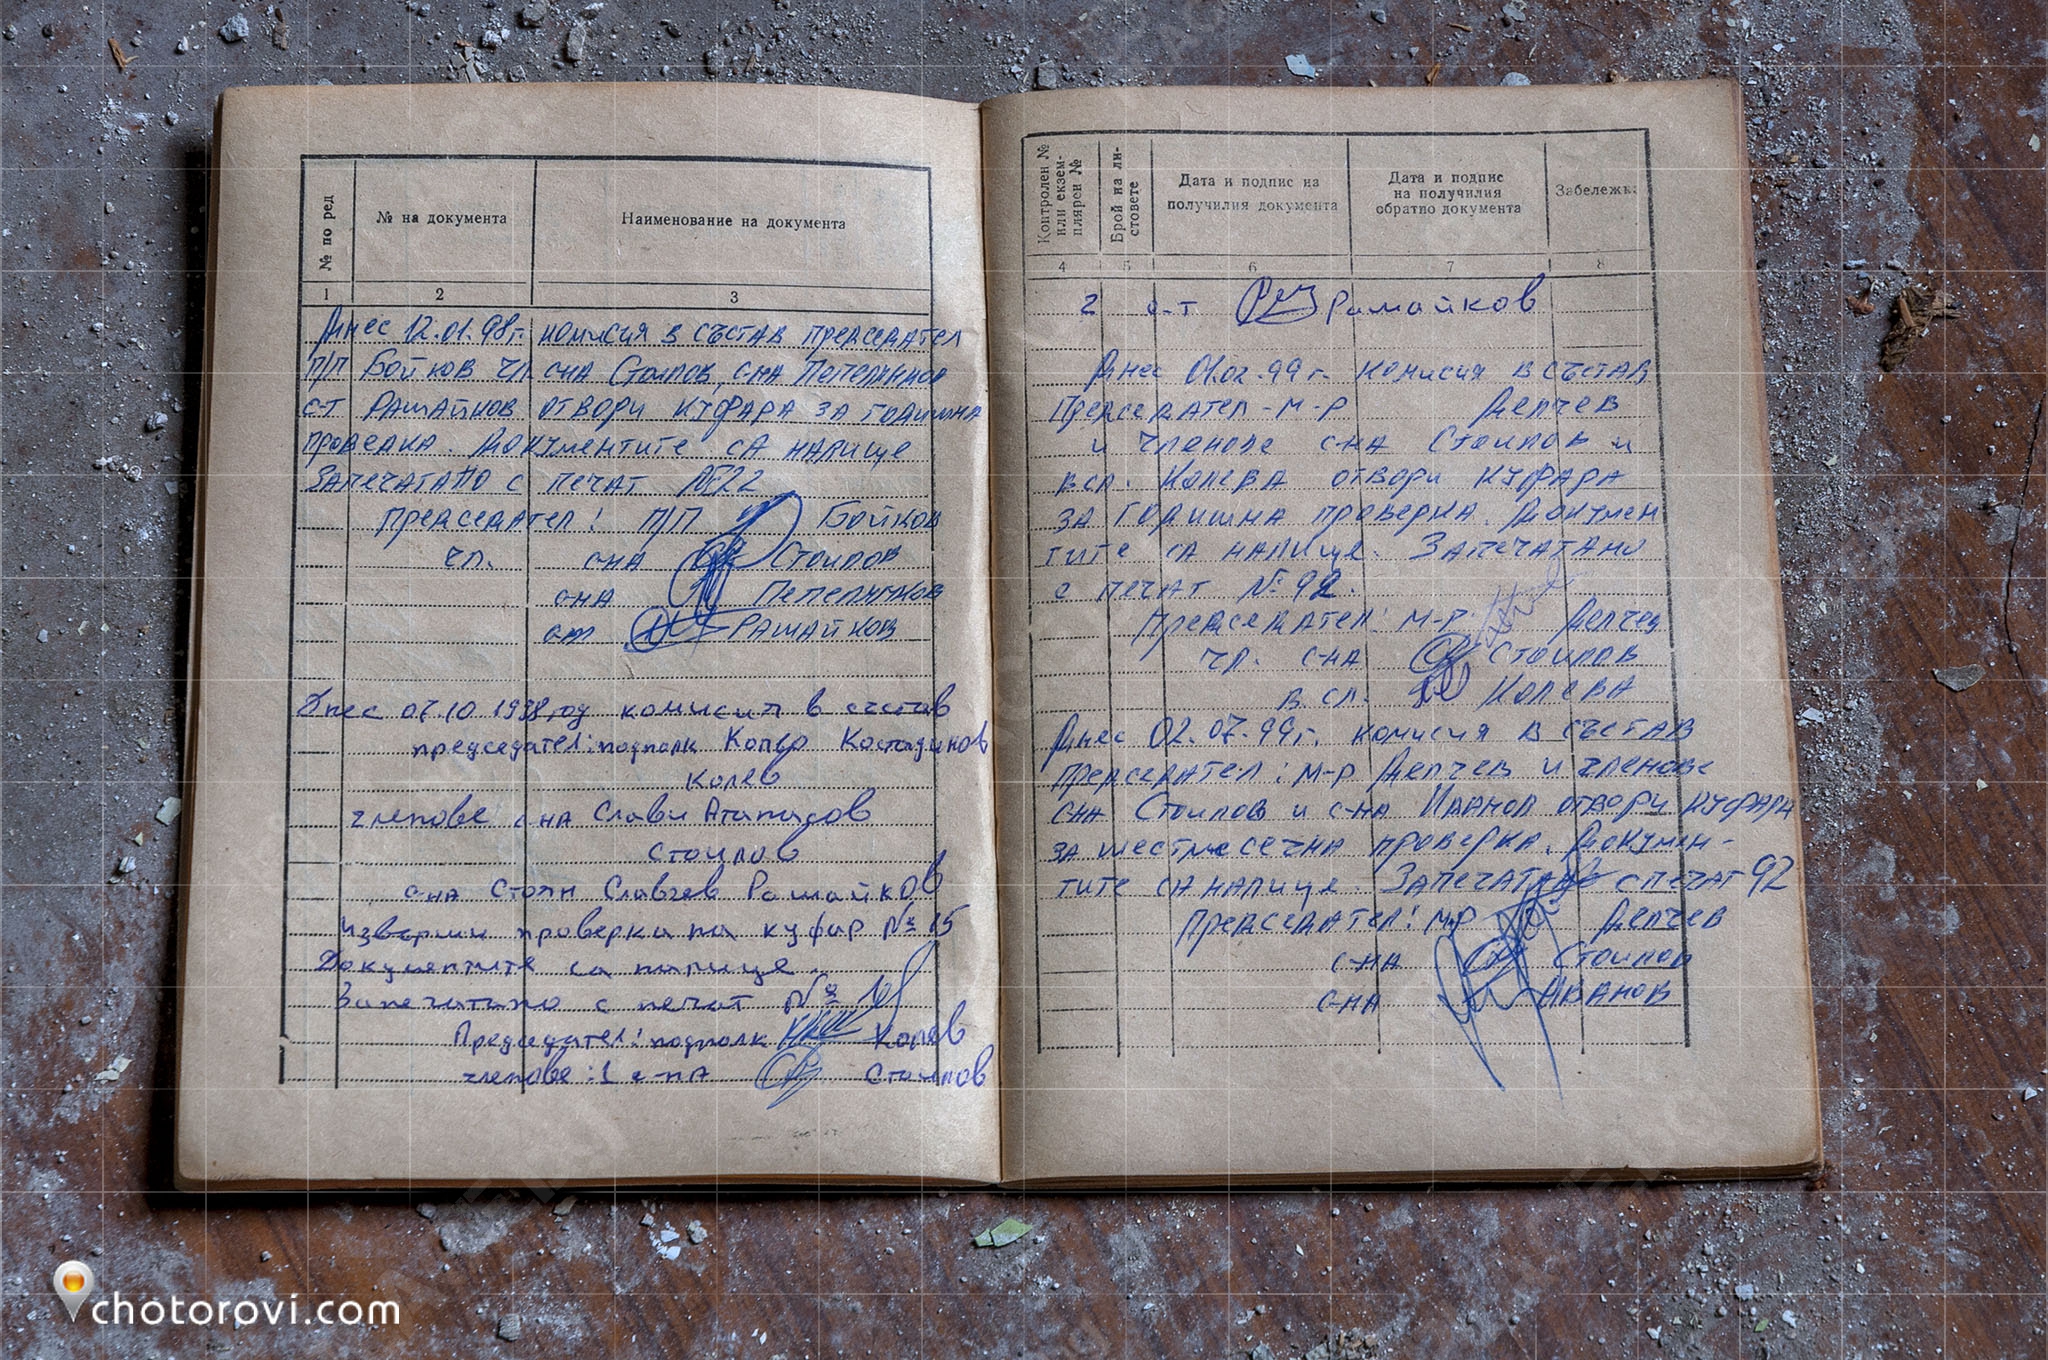 № по ред
№ на документа
Наименование на документа
1 2 3
Днес 12.01.98г. комисия в състав председател
П/П Бойков чл. с-на Стоилов, с-на Пепелянков
с-т Рашайков отвори куфара за годишна
проверка. Документите са налице
Запечатано с печат №22
Председател: П/П Бойков
чл. с-на Стоилов
с-на Пепелянков
с-т Рашайков
Днес 07.10 1998год комисия в състав
председател: подполк Колев Костадинов
Колев
членове с-на Слави Атанасов
Стоилов
с-на Стоян Славчев Рашайков
извърши проверка на куфар № 15
Документите са налице.
Запечатано с печат №
Председател: подполк Колев
членове: 1 с-на Стоилов
Контролен №
или екзем-
плярен №
Брой на ли-
стовете
Дата и подпис на
получилия документа
Дата и подпис
на получилия
обратно документа
Забележка
4 5 6 7 8
2 с-т Рашайков
Днес 01.02.99г. комисия в състав
Председател - м-р Делчев
и членове с-на Стоилов и
в сл. Колева отвори куфара
за годишна проверка. Докумен
тите са налице. Запечатано
с печат № 92.
Председател: м-р Делчев
чл. с-на Стоилов
в сл. Колева
Днес 02.07.99г. комисия в състав
председател: м-р Делчев и членове
с-на Стоилов и с-на Иванов отвори куфара
за шестмесечна проверка. Докумен-
тите са налице. Запечатано с печат 92
Председател: м-р Делчев
с-на Стоилов
с-на Иванов
chotorovi.com